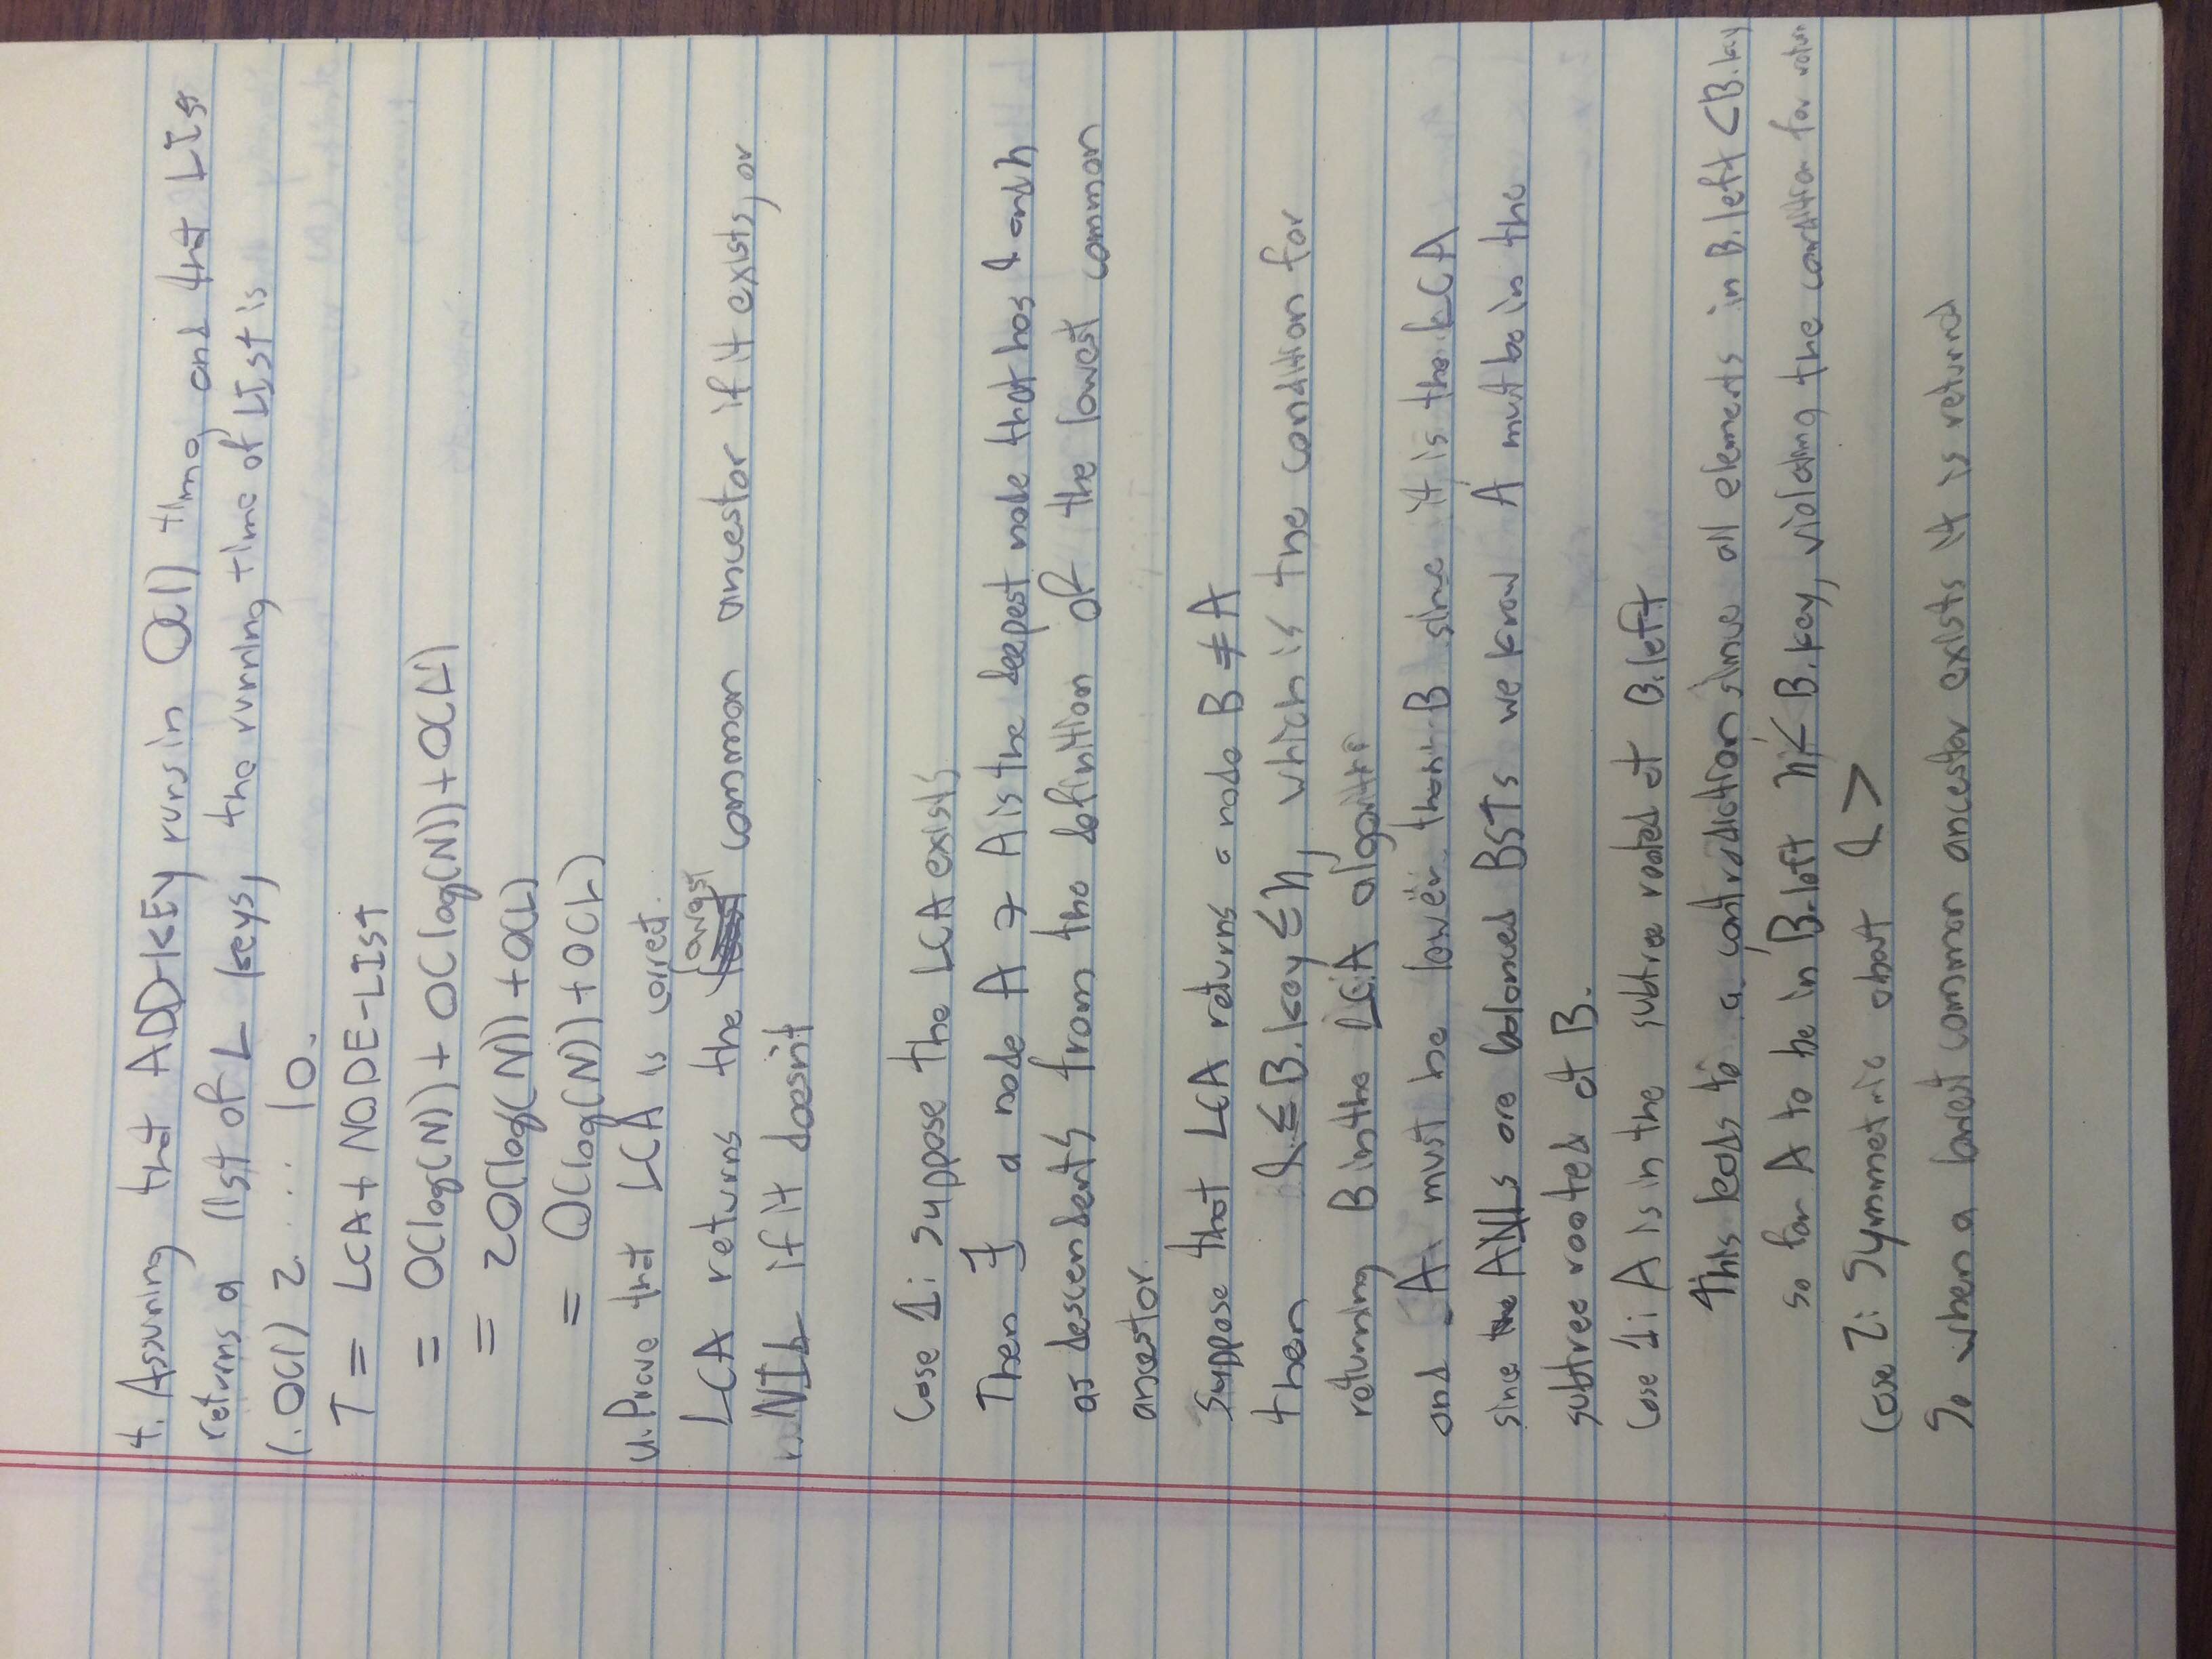 t. Assuming that ADD-KEY runs in O(1) time, and that LIST
returns a list of L keys, the running time of LIST is
1. O(1) 2. ... 10.
T = LCA + NODE-LIST
= O(log(N)) + O(log(N)) + O(L)
= 2O(log(N)) + O(L)
= O(log(N)) + O(L)
u. Prove that LCA is correct.
LCA returns the lowest common ancestor if it exists, or
NIL if it doesn't
Case 1: suppose the LCA exists
Then ∃ a node A ∋ A is the deepest node that has l and h
as descendents from the definition of the lowest common
ancestor.
Suppose that LCA returns a node B ≠ A
then l ≤ B.key ≤ h, which is the condition for
returning B in the LCA algorithm
and A must be lower than B since it is the LCA
since the AVLs are balanced BSTs we know A must be in the
subtree rooted at B.
Case 1: A is in the subtree rooted at B.left
This leads to a contradiction since all elements in B.left < B.key
so for A to be in B.left h < B.key, violating the condition for return
Case 2: Symmetric about l >
So when a lowest common ancestor exists it is returned